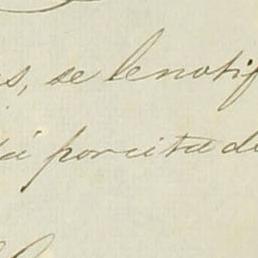 s, se lenotif
tá por citad